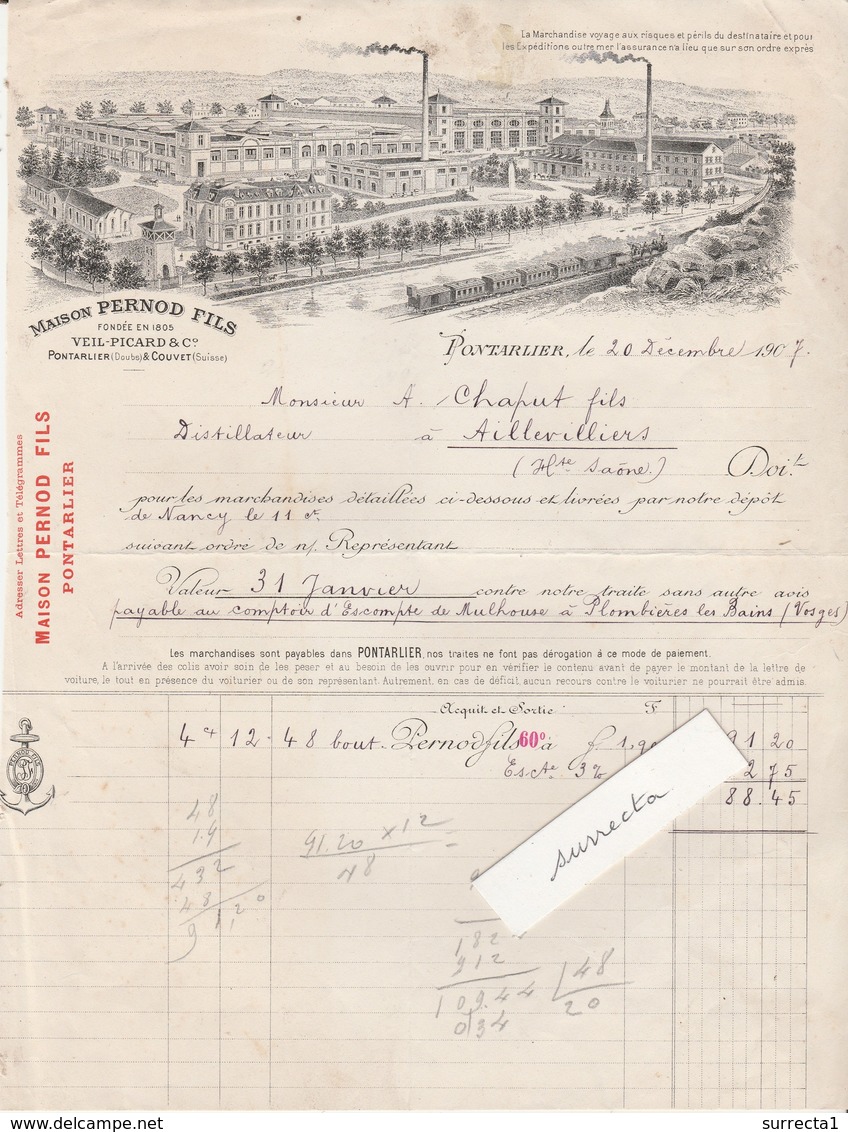 La Marchandise voyage aux risques et périls du destinataire et pour
les Expéditions outre mer l'assurance n'a lieu que sur son ordre exprès
MAISON PERNOD FILS
FONDÉE EN 1805
VEIL-PICARD & Cº
PONTARLIER (Doubs) & COUVET (Suisse)
PONTARLIER, le 20 Décembre 1907.
Monsieur A. Chaput fils
Distillateur à Aillevilliers
(Hte Saône.) Doi.t
pour les marchandises détaillées ci-dessous et livrées par notre dépôt
de Nancy le 11 ct.
suivant ordre de n/. Représentant
Valeur 31 Janvier contre notre traite sans autre avis
payable au comptoir d'Escompte de Mulhouse à Plombières les Bains (Vosges)
Adresser Lettres et Télégrammes
MAISON PERNOD FILS
PONTARLIER
Les marchandises sont payables dans PONTARLIER, nos traites ne font pas dérogation à ce mode de paiement.
A l'arrivée des colis avoir soin de les peser et au besoin de les ouvrir pour en vérifier le contenu avant de payer le montant de la lettre de
voiture, le tout en présence du voiturier ou de son représentant. Autrement, en cas de déficit, aucun recours contre le voiturier ne pourrait être admis.
Acquit et Sortie F
4 ct 12 - 48 bout. Pernod fils 60º à f. 1,90 91 20
Escte 3% 2 75
88.45
PERNOD FILS
PF
48
19
432
48
91,20
91.20 x 12
48
182
912
109.44 48
034 20
surrecta
delcampe.net
surrecta1